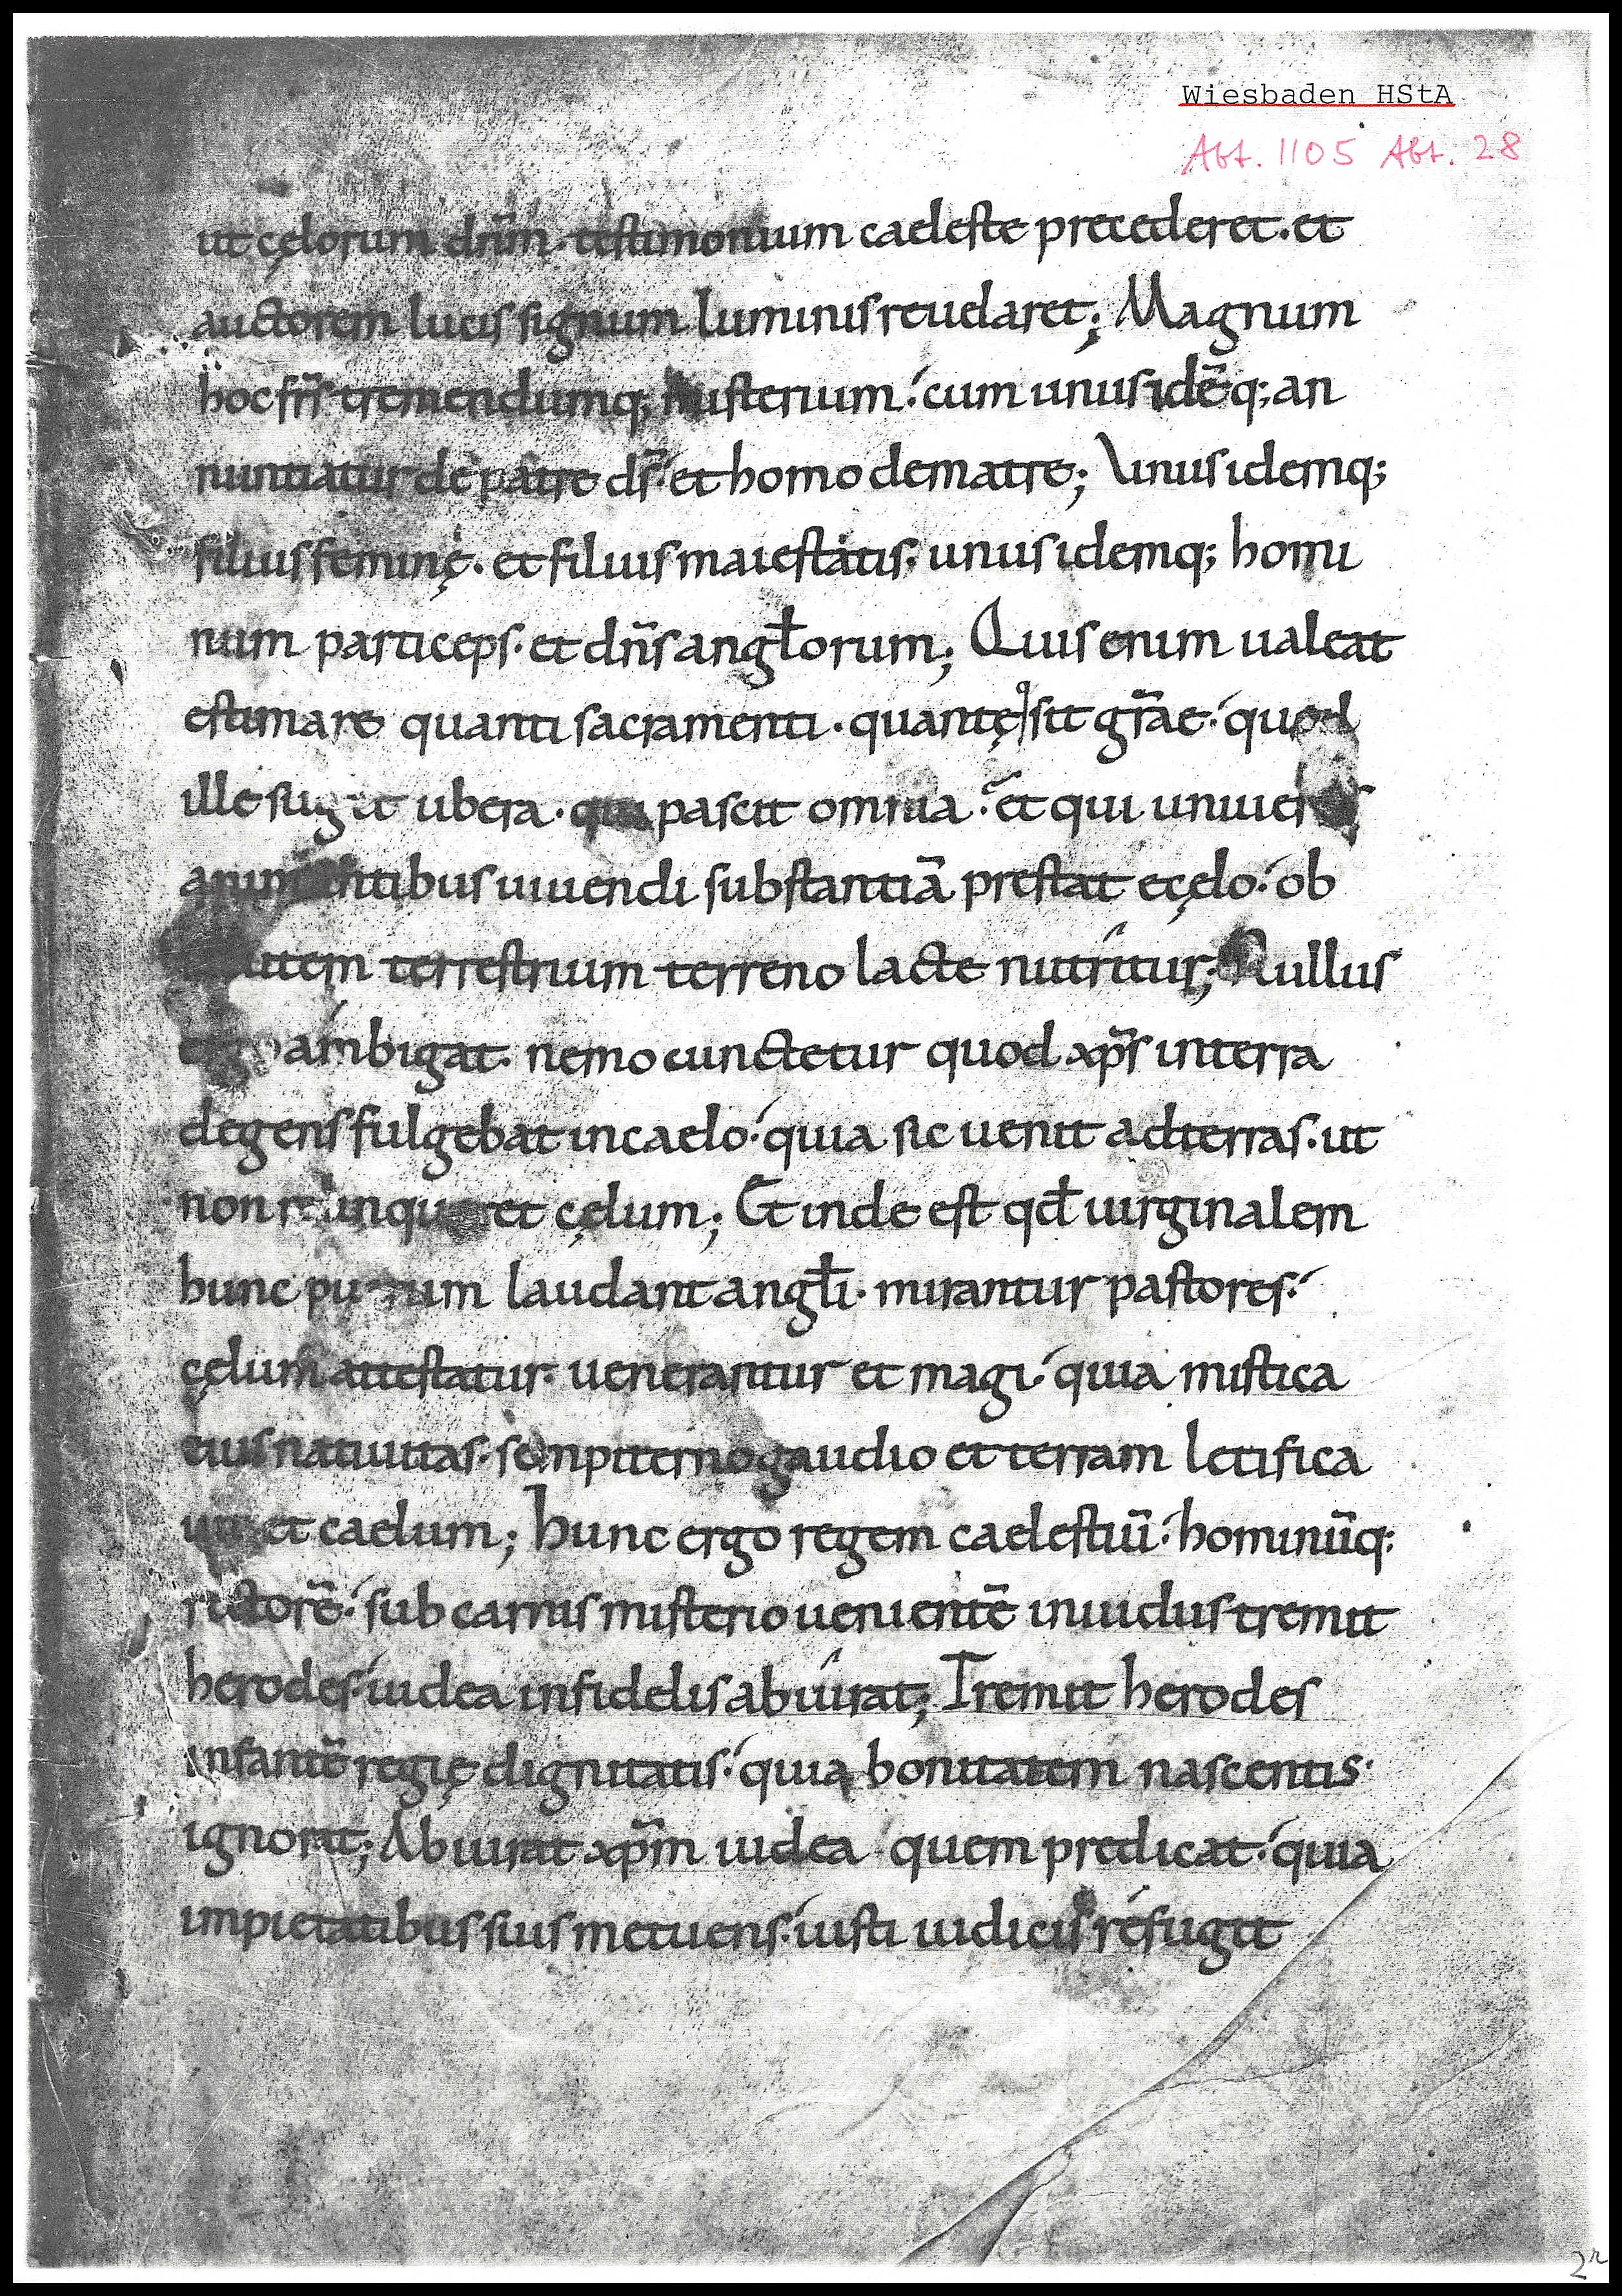 Wiesbaden HStA
Abt. 1105 Abt. 28
ut cęlorum dn̄m · testimonium caeleste precederet · et
auctorem lucis signum luminis reuelaret; Magnum
hoc fr̄s tremendumq; misterium · cum unus idē q; an
nuntiatur de patre ds̄ · et homo de matre; Unus idemq;
filius feminę · et filius maiestatis · unus idemq; homi
num particeps · et dn̄s angl̄orum; Quis enim ualeat
estimare quanti sacramenti · quantę sit gr̄ae · quod
ille sugit ubera · qui pascit omnia · et qui uniuersis
animantibus uiuendi substantiā prestat e cęlo · ob
terrestrium terreno lacte nutritur; Nullus
ergo ambigat · nemo cunctetur quod xp̄s in terra
degens fulgebat in caelo · quia sic uenit ad terras · ut
non relinqueret cęlum; Et inde est qđ uirginalem
hunc puerum laudant angl̄i · mirantur pastores ·
cęlum attestatur · uenerantur et magi · quia mistica
eius natiuitas · sempiterno gaudio et terram letifica
uit et caelum; hunc ergo regem caelestiū · hominūq;
rectorē · sub carnis misterio uenientē inuidus tremit
herodes · iudea infidelis abiurat; Tremit herodes
infantē regię dignitatis · quia bonitatem nascentis ·
ignorat; Abiurat xp̄m iudea quem predicat · quia
impietatibus suis metuens · iusti iudicis refugit
2r